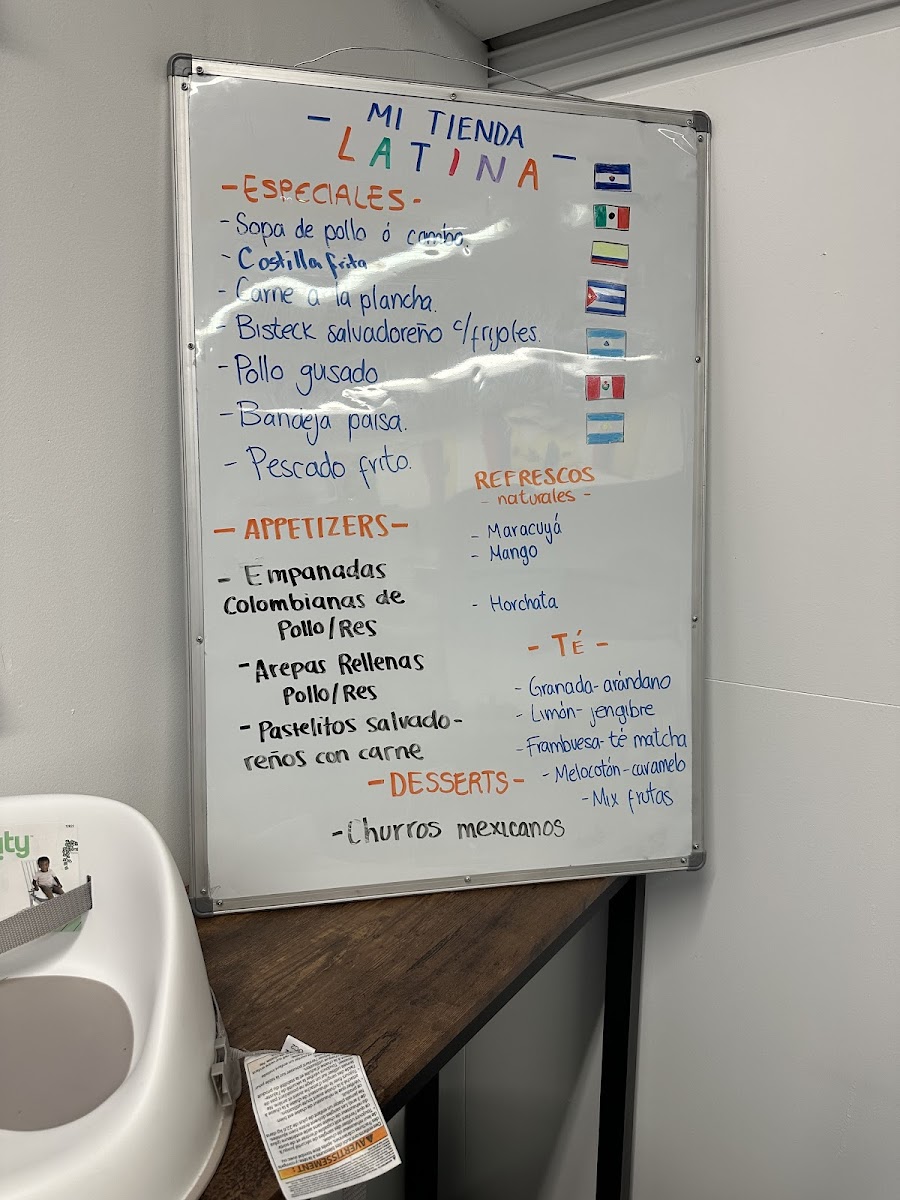 - MI TIENDA -
LATINA
- ESPECIALES -
- Sopa de pollo ó combo.
- Costilla frita
- Carne a la plancha.
- Bisteck salvadoreño c/frijoles.
- Pollo gusado
- Bandeja paisa.
- Pescado frito.
- APPETIZERS -
- Empanadas
Colombianas de
Pollo/Res
- Arepas Rellenas
Pollo/Res
- Pastelitos salvado-
reños con carne
REFRESCOS
- naturales -
- Maracuyá
- Mango
- Horchata
- TÉ -
- Granada-arándano
- Limón-jengibre
- Frambuesa-té matcha
- Melocotón-caramelo
- Mix frutas
- DESSERTS -
- Churros mexicanos
ity
AVERTISSEMENT :